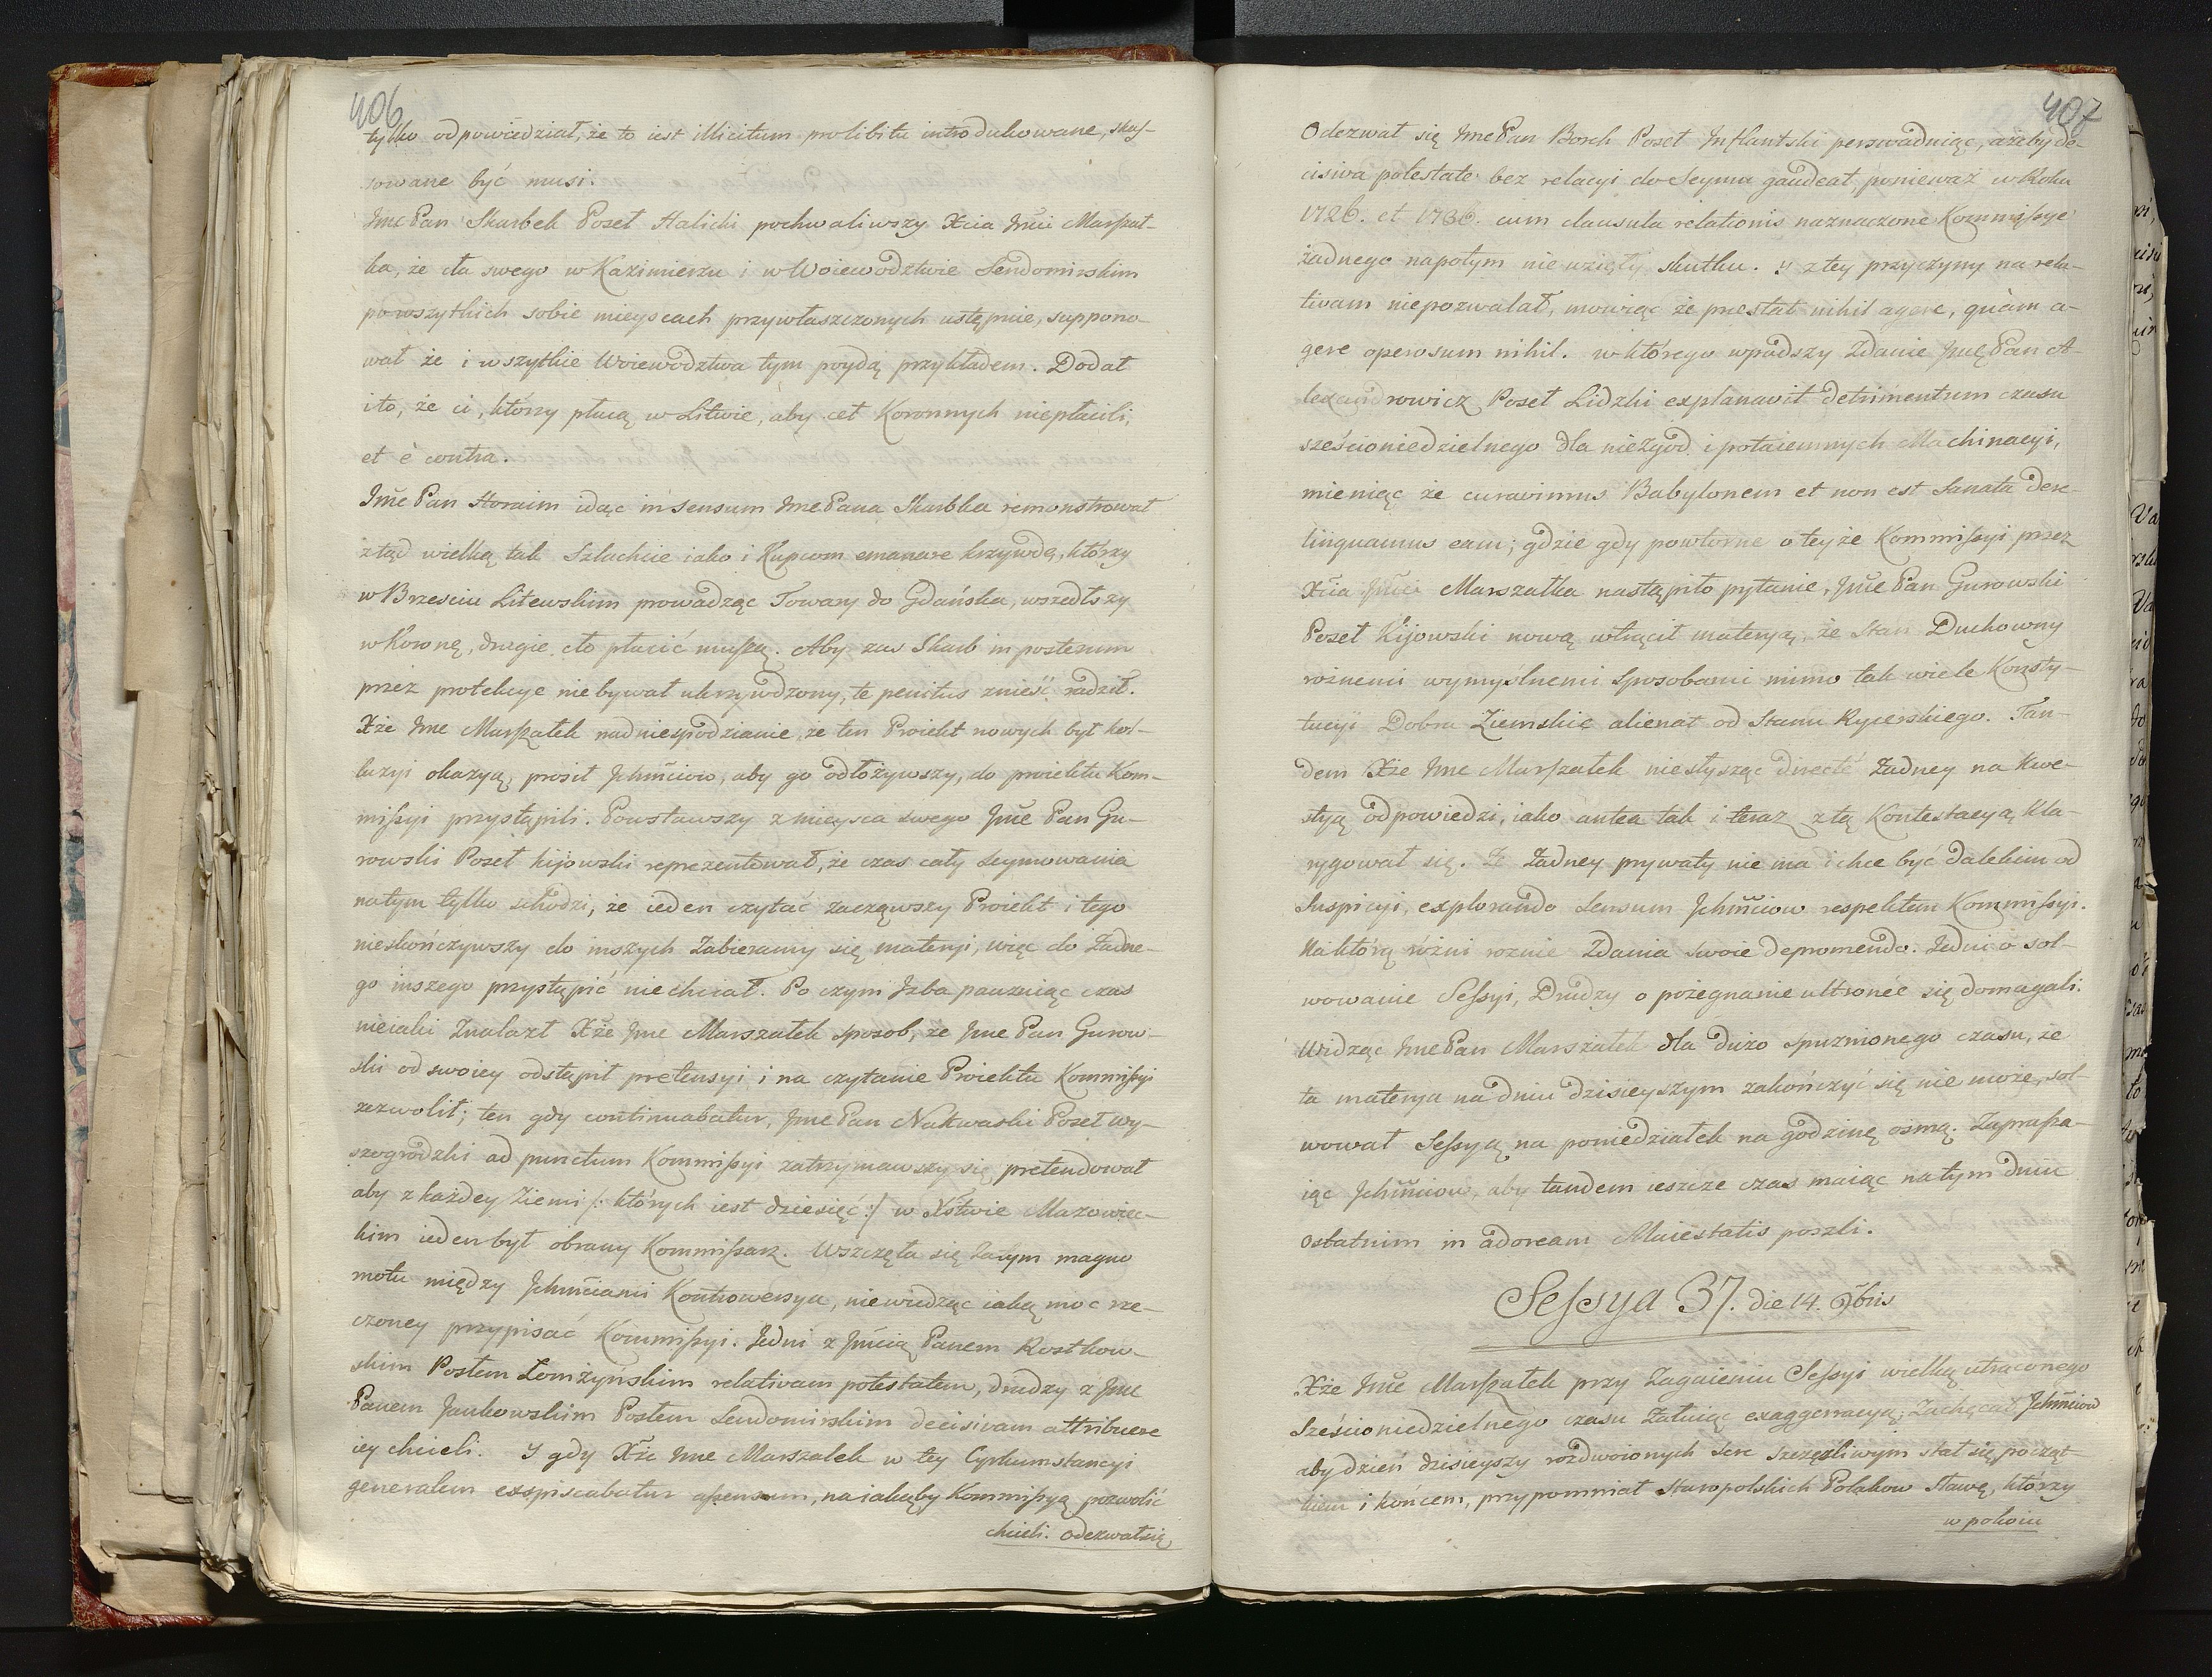 406
tylko odpowiedział, że to iest illicitum prolibitu introdukowane, skas-
sowane być musi.
Jmc Pan Skarbek Poseł Halicki pochwaliwszy Xcia Jmci Marszał-
ka, że cła swego w Kazimierzu i w Woiewodztwie Sendomirskim
po wszytkich sobie mieyscach przywłaszczonych ustępuie, suppono-
wał że i wszytkie Woiewodztwa tym poydą przykładem. Dodał
i to, że ci, którzy płacą w Litwie, aby ceł Koronnych niepłacili,
et è contra.
Jmc Pan Horaim idąc in sensum Jmc Pana Skarbka remonstrował
ztąd wielką tak Szlachcie iako i Kupcom emanare krzywdę, którzy
w Brzesciu Litewskim prowadząc Towary do Gdańska, wszedłszy
w Koronę, drugie cło płacić muszą. Aby zas Skarb in posterum
przez protekcye nie bywał ukrzywdzony, te penitus znieść radził.
Xże Jmc Marszałek nadniespodzianie, że ten Proiekt nowych był kol-
luzyi okazyą, prosił Jchmciow, aby go odłożywszy, do proiektu Kom-
missyi przystąpili. Powstawszy z mieysca swego Jmc Pan Gu-
rowski Poseł kijowski reprezentował, że czas cały seymowania
na tym tylko schodzi, że ieden czytać zacząwszy Proiekt i tego
nieskończywszy do inszych zabieramy się materyi, więc do żadne-
go inszego przystąpić niechciał. Po czym Jzba pauzuiąc czas
nieiaki Znalazł Xże Jmc Marszałek sposob, że Jmc Pan Gurow-
ski od swoiey odstąpił pretensyi i na czytanie Proiektu Kommissyi
zezwolił; ten gdy continuabatur, Jmc Pan Nakwaski Poseł wy-
szogrodzki ad punctum Kommissyi zatrzymawszy się pretendował
aby z każdey Ziemi /: których iest dziesięć :/ w Xstwie Mazowiec-
kim ieden był obrany Kommissarz. Wszczęła się zatym magno
motu między Jchmciami Kontrowersya, niewiedząc iaką moc rze-
czoney przypisać Kommissyi. Jedni z Jmcią Panem Rostkow-
skim Posłem Łomżyńskim relativam potestatem, drudzy z Jmc
Panem Jankowskim Posłem Sendomirskim decisivam attribuere
iey chcieli. Y gdy Xże Jmc Marszałek w tey Cyrkumstancyi
generalem exspiscabatur assensum, na iakąby Kommissyą pozwolić
chcieli. odezwał się
407
Odezwał się Jmc Pan Borch Poseł Jnflantski perswaduiąc, ażeby de-
cisiva potestate bez relacyi do Seymu gaudeat, ponieważ w Roku
1726. et 1736. cum clausula relationis naznaczone Kommissye
żadnego napotym nie wzięły skutku. y z tey przyczyny na rela-
tivam niepozwalał, mowiąc że praestat nihil agere, quàm a-
gere operosum nihil. w którego wpadszy Zdanie Jmc Pan A-
lexandrowicz Poseł Lidzki explanavit detrimentum czasu
sześcioniedzielnego dla niezgod i potaiemnych Machinacyi,
mieniąc że curavimus Babylonem et non est Sanata dere-
linquamus eam; gdzie gdy powtorne o teyże Kommissyi przez
Xcia Jmci Marszałka nastąpiło pytanie, Jmc Pan Gurowski
Poseł Kijowski nową wtrącił materyą, że Stan Duchowny
rożnemi wymyślnemi sposobami mimo tak wiele Konsty-
tucyi Dobra Ziemskie alienat od Stanu Rycerskiego. Tan-
dem Xże Jmc Marszałek niesłysząc directè Żadney na kwe-
styą odpowiedzi, iako antea tak i teraz z tą Kontestacyą kla-
rygował się. Że Żadney prywaty nie ma i chce być dalekim od
Suspicyi, explorando Sensum Jchmciow respektem Kommissyi.
Na którą rożni roznie Zdania swoie depromendo. Jedni o sol-
wowanie Sessyi, Drudzy o pożegnanie ultronee się domagali.
Widząc Jmc Pan Marszałek dla dużo spuznionego czasu, że
ta materya na dniu dzisieyszym zakończyć się nie może, sol-
wował Sessyą na poniedziałek na godzinę osmą. Zaprasza-
iąc Jchmciow, aby tandem ieszcze czas maiąc na tym dniu
ostatnim in adoream Maiestatis poszli.
Sessya 37. die 14. 9bris
Xże Jmc Marszałek przy Zagaieniu Sessyi wielką utraconego
Sześcioniedzielnego czasu Żałuiąc exaggerracyą, Zachęcał Jchmciow
aby dzień dzisieyszy rozdwoionych serc szczęśliwym stał się począt-
kiem i końcem, przypomniał Staropolskich Polakow sławę, którzy
w pokoiu